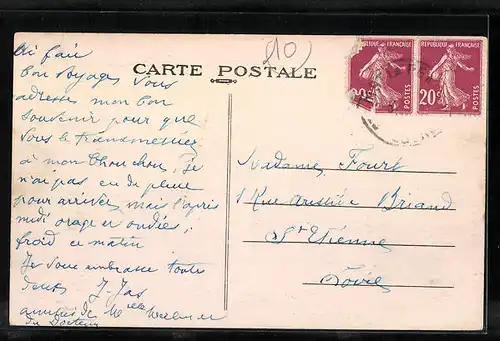 Ai fait
bon voyage vous
adresse mon bon
souvenir pour que
vous le transmettiez
à mon Chouchou, je
n'ai pas eu de pluie
pour arriver mais l'après
midi orage et ondées,
froid ce matin
Je vous embrasse toute
deux J. Jas
amitiés de Melle
du Docteur
(10)
CARTE POSTALE
REPUBLIQUE FRANÇAISE
20c
REPUBLIQUE FRANÇAISE
20c
Madame Fourt
1 Rue Aristide Briand
St Etienne
Loire